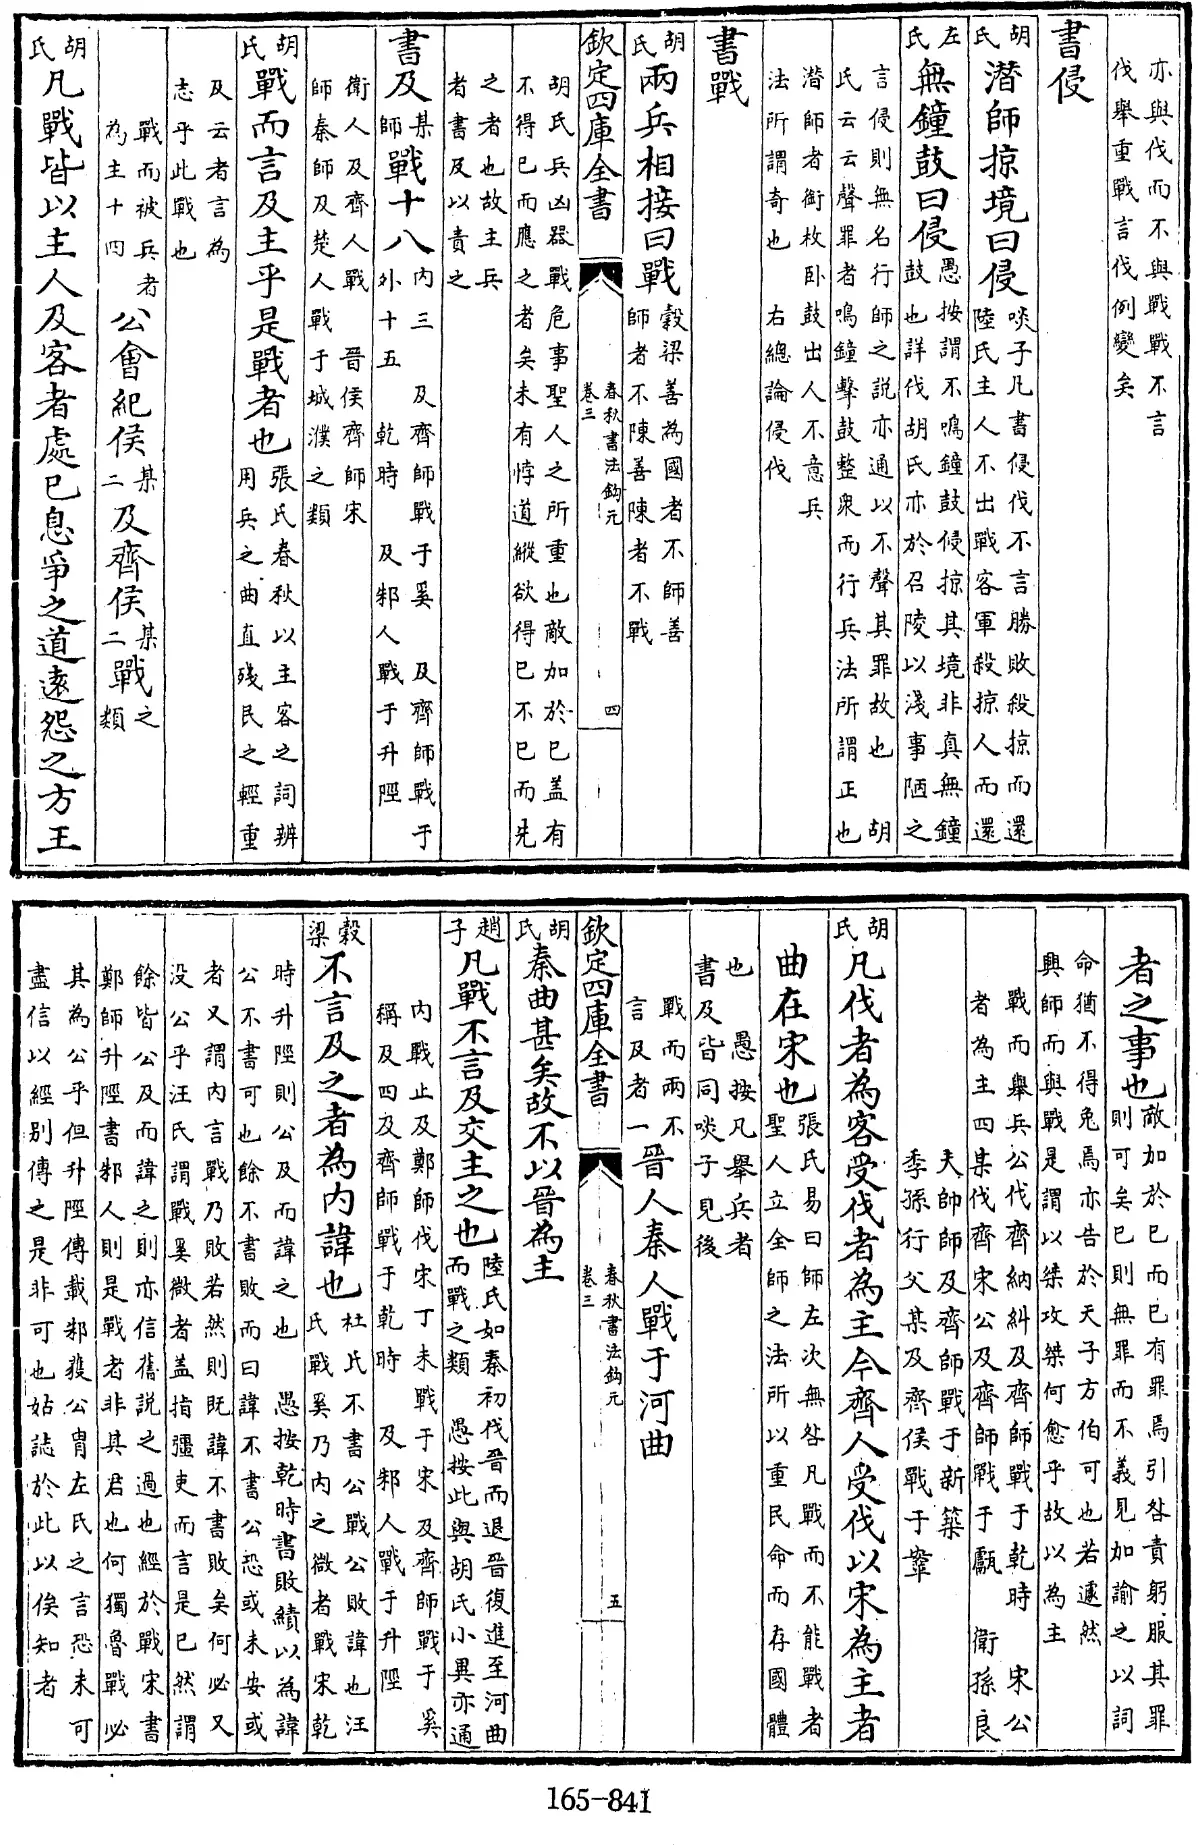 亦與伐而不與戰戰不言
伐舉重戰言伐例變矣
書侵
胡氏潛師掠境曰侵啖子凡書侵伐不言勝敗殺掠而還
陸氏主人不出戰客軍殺掠人而還
左氏無鐘鼓曰侵愚按謂不鳴鐘鼓侵掠其境非真無鐘
鼓也詳伐胡氏亦於召陵以淺事陋之
言侵則無名行師之説亦通以不聲其罪故也 胡
氏云云聲罪者鳴鐘擊鼓整衆而行兵法所謂正也
潛師者銜枚卧鼓出人不意兵
法所謂奇也 右總論侵伐
書戰
胡氏兩兵相接曰戰穀梁善為國者不師善
師者不陳善陳者不戰
欽定四庫全書 春秋書法鈎元 卷三 四
胡氏兵凶器戰危事聖人之所重也敵加於已盖有
不得已而應之者矣未有悖道縱欲得已不已而先
之者也故主兵
者書及以責之
書及某師戰十八内三 及齊師戰于奚 及齊師戰于
外十五 乾時 及邾人戰于升陘
衛人及齊人戰 晉侯齊師宋
師秦師及楚人戰于城濮之類
胡氏戰而言及主乎是戰者也張氏春秋以主客之詞辨
用兵之曲直殘民之輕重
及云者言為
志乎此戰也
戰而被兵者
為主十四 公會紀侯某二及齊侯某二戰之類
胡氏凡戰皆以主人及客者處已息爭之道遠怨之方王
者之事也敵加於已而已有罪焉引咎責躬服其罪
則可矣已則無罪而不義見加諭之以詞
命猶不得免焉亦告於天子方伯可也若遽然
興師而與戰是謂以桀攻桀何愈乎故以為主
戰而舉兵公伐齊納糾及齊師戰于乾時 宋公
者為主四某伐齊宋公及齊師戰于甗 衛孫良
夫帥師及齊師戰于新築
季孫行父某及齊侯戰于鞌
胡氏凡伐者為客受伐者為主今齊人受伐以宋為主者
曲在宋也張氏易曰師左次無咎凡戰而不能戰者
聖人立全師之法所以重民命而存國體
也 愚按凡舉兵者
書及皆同啖子見後
戰而兩不
言及者一 晉人秦人戰于河曲
欽定四庫全書 春秋書法鈎元 卷三 五
胡氏秦曲甚矣故不以晉為主
趙子凡戰不言及交主之也陸氏如秦初伐晉而退晉復進至河曲
而戰之類 愚按此與胡氏小異亦通
内戰止及鄭師伐宋丁未戰于宋 及齊師戰于奚
稱及四及齊師戰于乾時 及邾人戰于升陘
穀梁不言及之者為内諱也杜氏不書公戰公敗諱也汪
氏戰奚乃内之微者戰宋乾
時升陘則公及而諱之也 愚按乾時書敗績以為諱
公不書可也餘不書敗而曰諱不書公恐或未安或
者又謂内言戰乃敗若然則既諱不書敗矣何必又
没公乎汪氏謂戰奚微者盖指疆吏而言是已然謂
餘皆公及而諱之則亦信舊説之過也經於戰宋書
鄭師升陘書邾人則是戰者非其君也何獨魯戰必
其為公乎但升陘傳載邾獲公胄左氏之言恐未可
盡信以經别傳之是非可也姑誌於此以俟知者
165-841